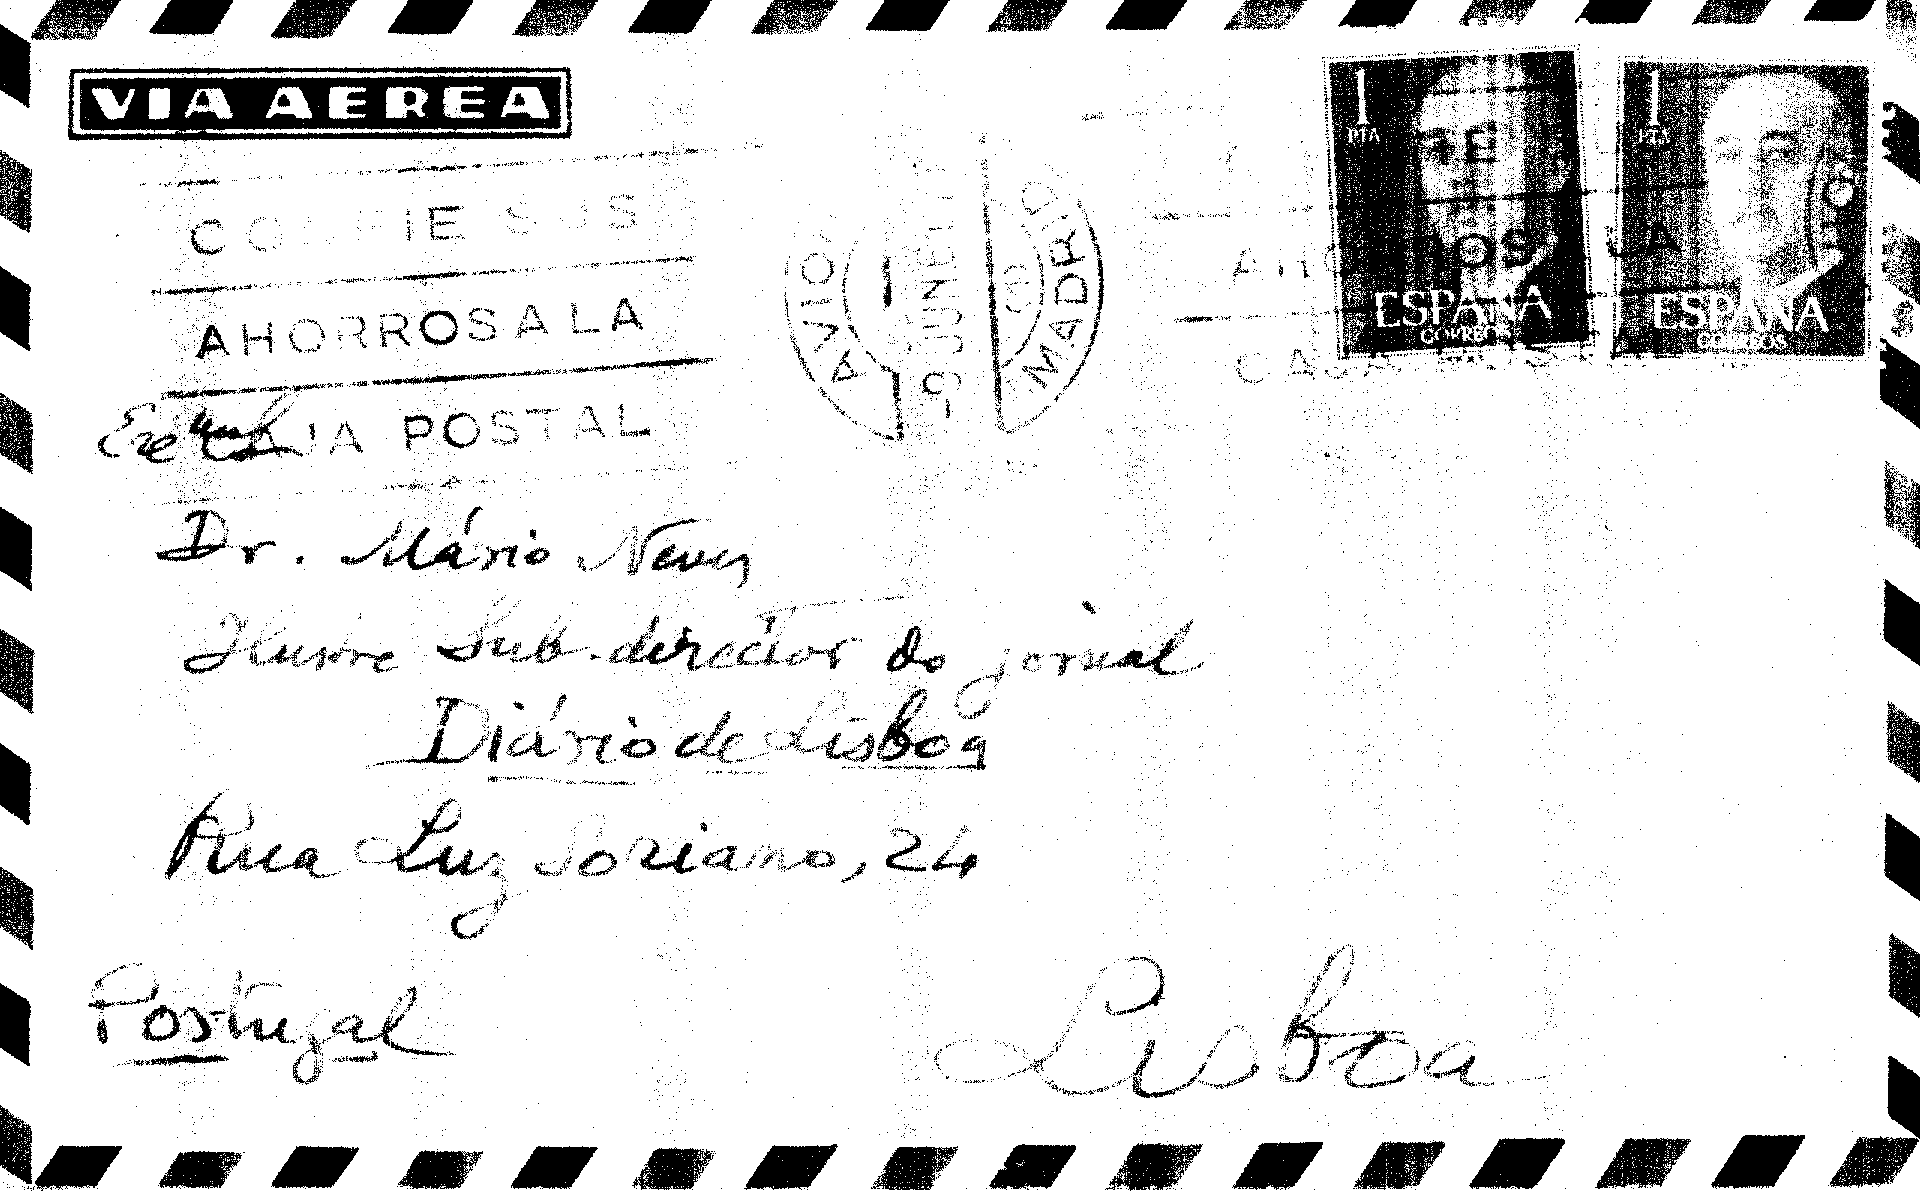 VIA AEREA
1 PTA
1 PTA
CONFIE SUS
AHORROS A LA
CAJA POSTAL
AVION
1
-9 JUN
MADRID
AHORROS A LA
ESPAÑA
CORREOS
ESPAÑA
CORREOS
CAJA POSTAL
Dr. Mário Neves
Ilustre Sub-director do jornal
Diário de Lisboa
Rua Luz Soriano, 24
Portugal
Lisboa